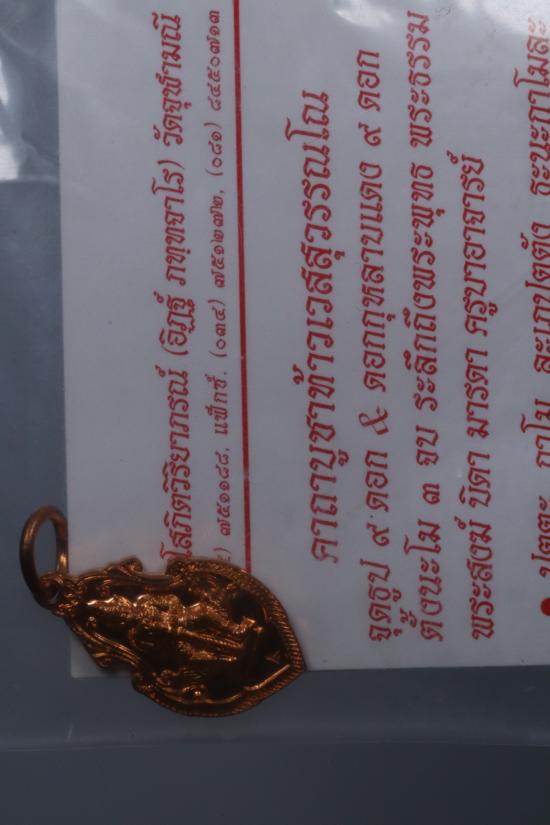 โสภิตวิริยาภรณ์ (อิฏฐ์ ภทฺทจาโร) วัดจุฬามณี
๗๕๑๑๘๘, แฟ็กซ์. (๐๓๔) ๗๕๑๒๗๒, (๐๘๑) ๘๔๕๐๗๑๓
คาถาบูชาท้าวเวสสุวรรณโณ
จุดธูป ๙ ดอก ๕ ดอกกุหลาบแดง ๙ ดอก
ตั้งนะโม ๓ จบ ระลึกถึงพระพุทธ พระธรรม
พระสงฆ์ บิดา มารดา ครูบาอาจารย์